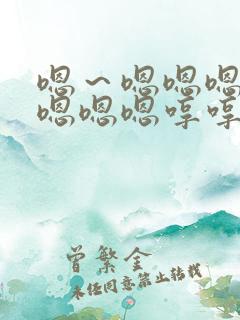 嗯～嗯嗯嗯
嗯嗯嗯哼哼
曾繁金
未经同意禁止转载